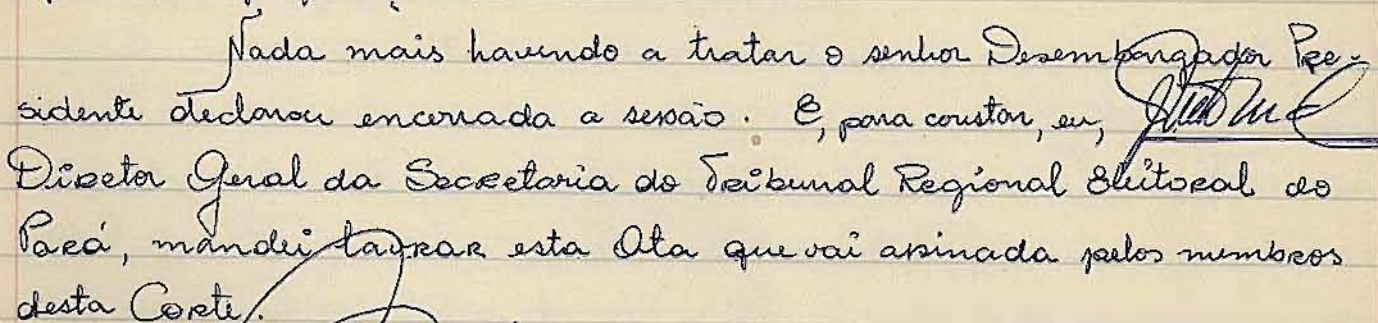 Nada mais havendo a tratar o senhor Desembargador Pre-
sidente declarou encerrada a sessão. E, para constar, eu,
Diretor Geral da Secretaria do Tribunal Regional Eleitoral do
Pará, mandei lavrar esta Ata que vai assinada pelos membros
desta Corte.